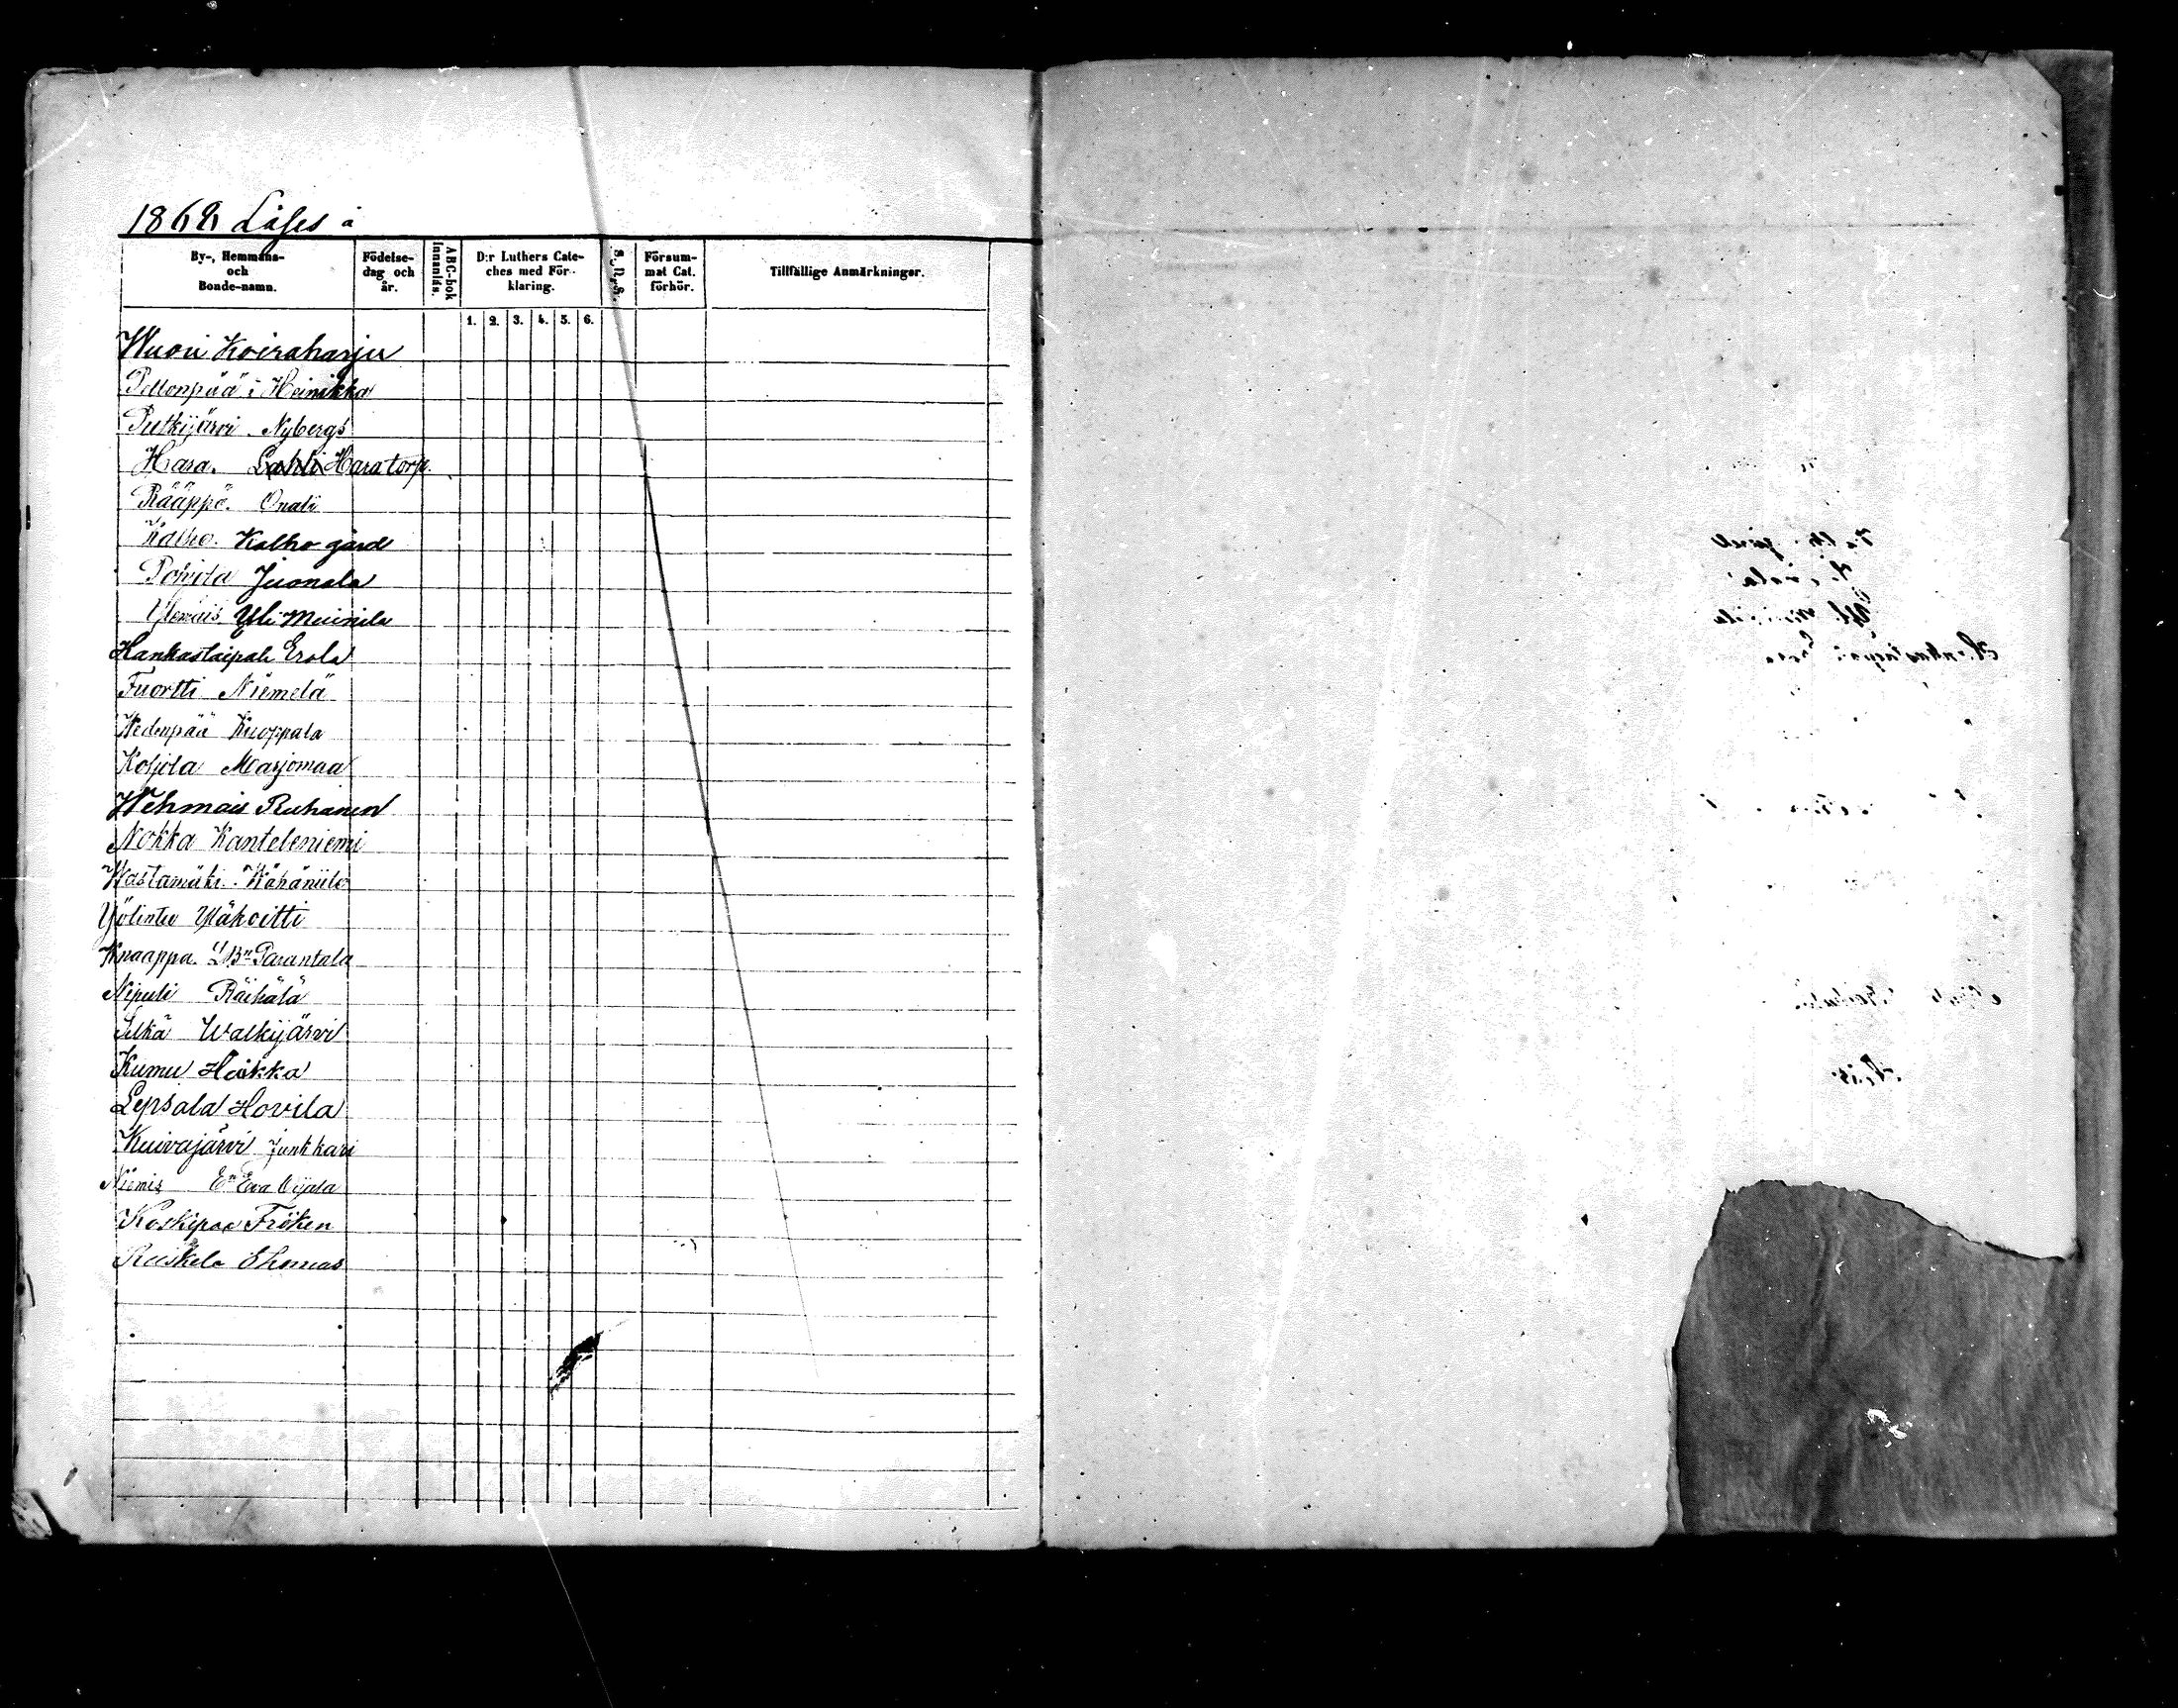 1868 Läses å
By-, Hemmans- och Bonde-namn.
Födelse-dag och år.
ABC-bok Innanläs.
D:r Luthers Cateches med Förklaring.
S. N. S.
Försummat Cat. förhör.
Tillfällige Anmärkningar.
1. 2. 3. 4. 5. 6.
Wuori Koiraharju
Peltonpää i Heinikka
Putkijärvi Nybergs
Hara. Lahti Haratorp.
Rääppö. Onali
Kalho. Kalho gård
Pohjola Juonala
Ylemäis Yli Muinila
Hankastaipale Erola
Tuortti Niemelä
Wedenpää Kuoppala
Kohjola Marjomaa
Wehmais Ruhanen
Nokka Kanteleniemi
Wastamäki. Wähäniilo
Yölintu Ylähoitti
Knaappa. Parantala
Nipuli Räihälä
Selkä Walkijärvi
Kumu Heikka
Lepsala Hovila
Kuivajärvi Junkkari
Niemis Eva Oijala
Koskipää Fröken
Ruskela Ehomas